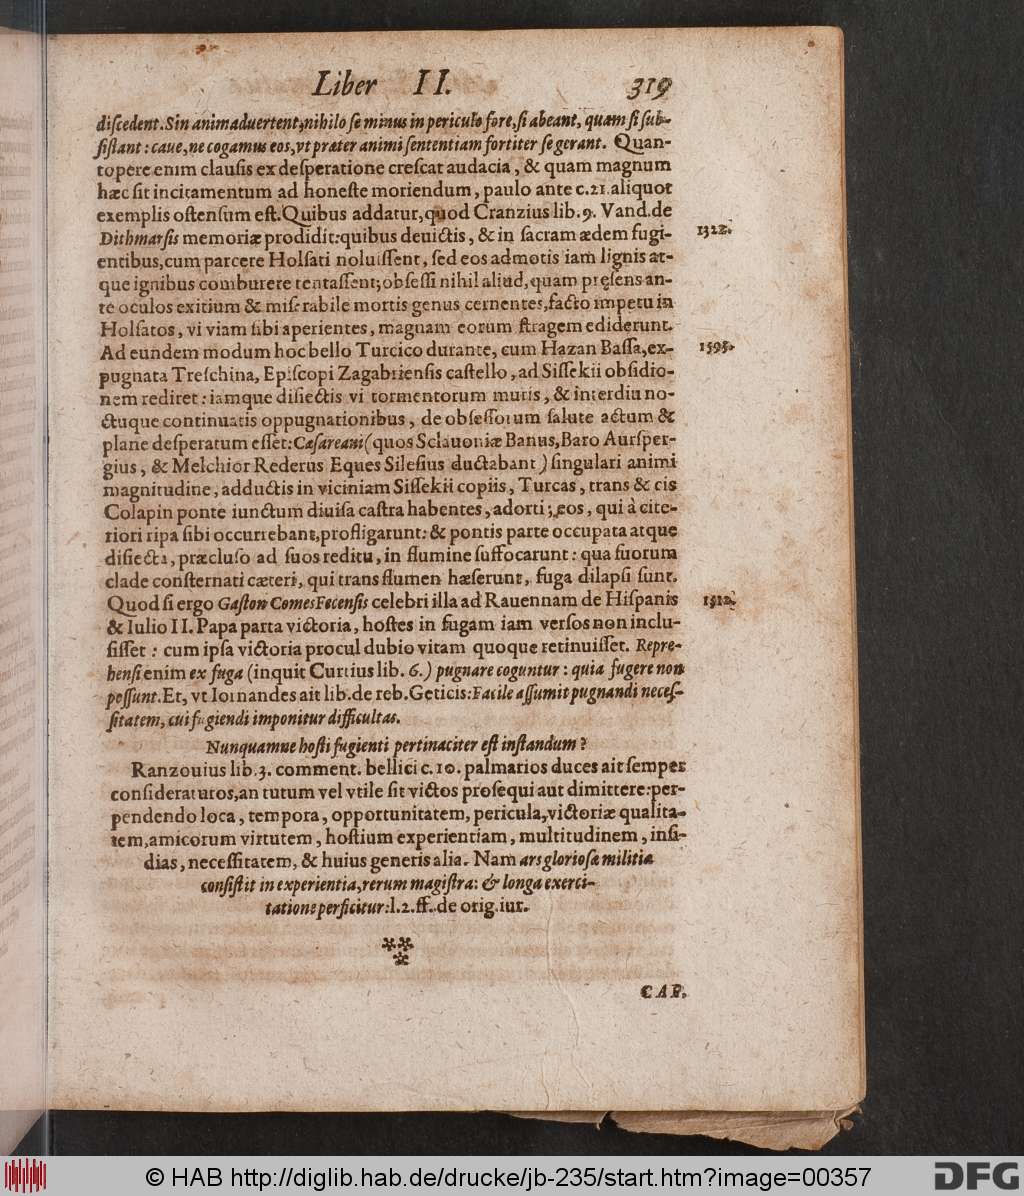 Liber II. 319
diſcedent. Sin animaduertent, nihilo ſe minus in periculo fore, ſi abeant, quam ſi ſub-
ſiſtant: caue, ne cogamus eos, vt præter animi ſententiam fortiter ſe gerant. Quan-
topere enim clauſis ex deſperatione creſcat audacia, & quam magnum
hæc ſit incitamentum ad honeſte moriendum, paulo ante c.21. aliquot
exemplis oſtenſum eſt. Quibus addatur, quod Cranzius lib. 9. Vand. de
Dithmarſis memoriæ prodidit: quibus deuictis, & in ſacram ædem fugi- 1322.
entibus, cum parcere Holſati noluiſſent, ſed eos admotis iam lignis at-
que ignibus comburere tentaſſent; obſeſſi nihil aliud, quam pręſens an-
te oculos exitium & miſerabile mortis genus cernentes, facto impetu in
Holſatos, vi viam ſibi aperientes, magnam eorum ſtragem ediderunt.
Ad eundem modum hoc bello Turcico durante, cum Hazan Baſſa, ex- 1595.
pugnata Treſchina, Epiſcopi Zagabrienſis caſtello, ad Siſſekii obſidio-
nem rediret: iamque diſiectis vi tormentorum muris, & interdiu no-
ctuque continuatis oppugnationibus, de obſeſſorum ſalute actum &
plane deſperatum eſſet: Cæſareani (quos Sclauoniæ Banus, Baro Aurſper-
gius, & Melchior Rederus Eques Sileſius ductabant) ſingulari animi
magnitudine, adductis in viciniam Siſſekii copiis, Turcas, trans & cis
Colapin ponte iunctum diuiſa caſtra habentes, adorti; eos, qui à cite-
riori ripa ſibi occurrebant, profligarunt: & pontis parte occupata atque
diſiecta, præcluſo ad ſuos reditu, in flumine ſuffocarunt: qua ſuorum
clade conſternati cæteri, qui trans flumen hæſerunt, fuga dilapſi ſunt.
Quod ſi ergo Gaſton Comes Fecenſis celebri illa ad Rauennam de Hiſpanis 1512.
& Iulio II. Papa parta victoria, hoſtes in fugam iam verſos non inclu-
ſiſſet: cum ipſa victoria procul dubio vitam quoque retinuiſſet. Repre-
henſi enim ex fuga (inquit Curtius lib. 6.) pugnare coguntur: quia fugere non
poſſunt. Et, vt Iornandes ait lib. de reb. Geticis: Facile aſſumit pugnandi neceſ-
ſitatem, cui fugiendi imponitur difficultas.
Nunquamne hoſti fugienti pertinaciter eſt inſtandum?
Ranzouius lib. 3. comment. bellici c. 10. palmarios duces ait ſemper
conſideraturos, an tutum vel vtile ſit victos proſequi aut dimittere: per-
pendendo loca, tempora, opportunitatem, pericula, victoriæ qualita-
tem, amicorum virtutem, hoſtium experientiam, multitudinem, inſi-
dias, neceſſitatem, & huius generis alia. Nam ars glorioſa militiæ
conſiſtit in experientia, rerum magiſtra: & longa exerci-
tatione perficitur: l. 2. ff. de orig. iur.
CAP.
© HAB http://diglib.hab.de/drucke/jb-235/start.htm?image=00357 DFG